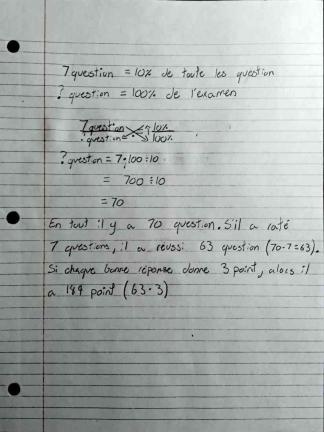 7 question = 10% de toute les question
? question = 100% de l'examen
7 question 10%
? question 100%
? question = 7·100÷10
= 700 ÷10
= 70
En tout il y a 70 question. S'il a raté
7 questions, il a réussi 63 question (70-7=63).
Si chaque bonne réponse donne 3 point, alors il
a 189 point (63·3)